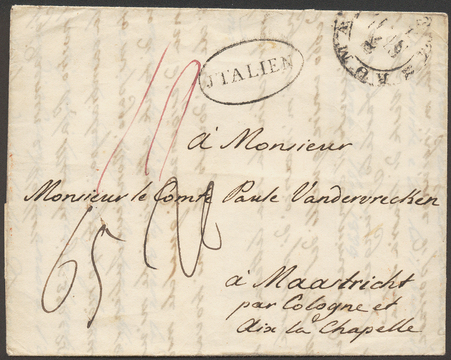 JTALIEN
ROMA
à Monsieur
Monsieur le Comte Paule Vandervrecken
65
à Maastricht
par Cologne et
Aix la Chapelle